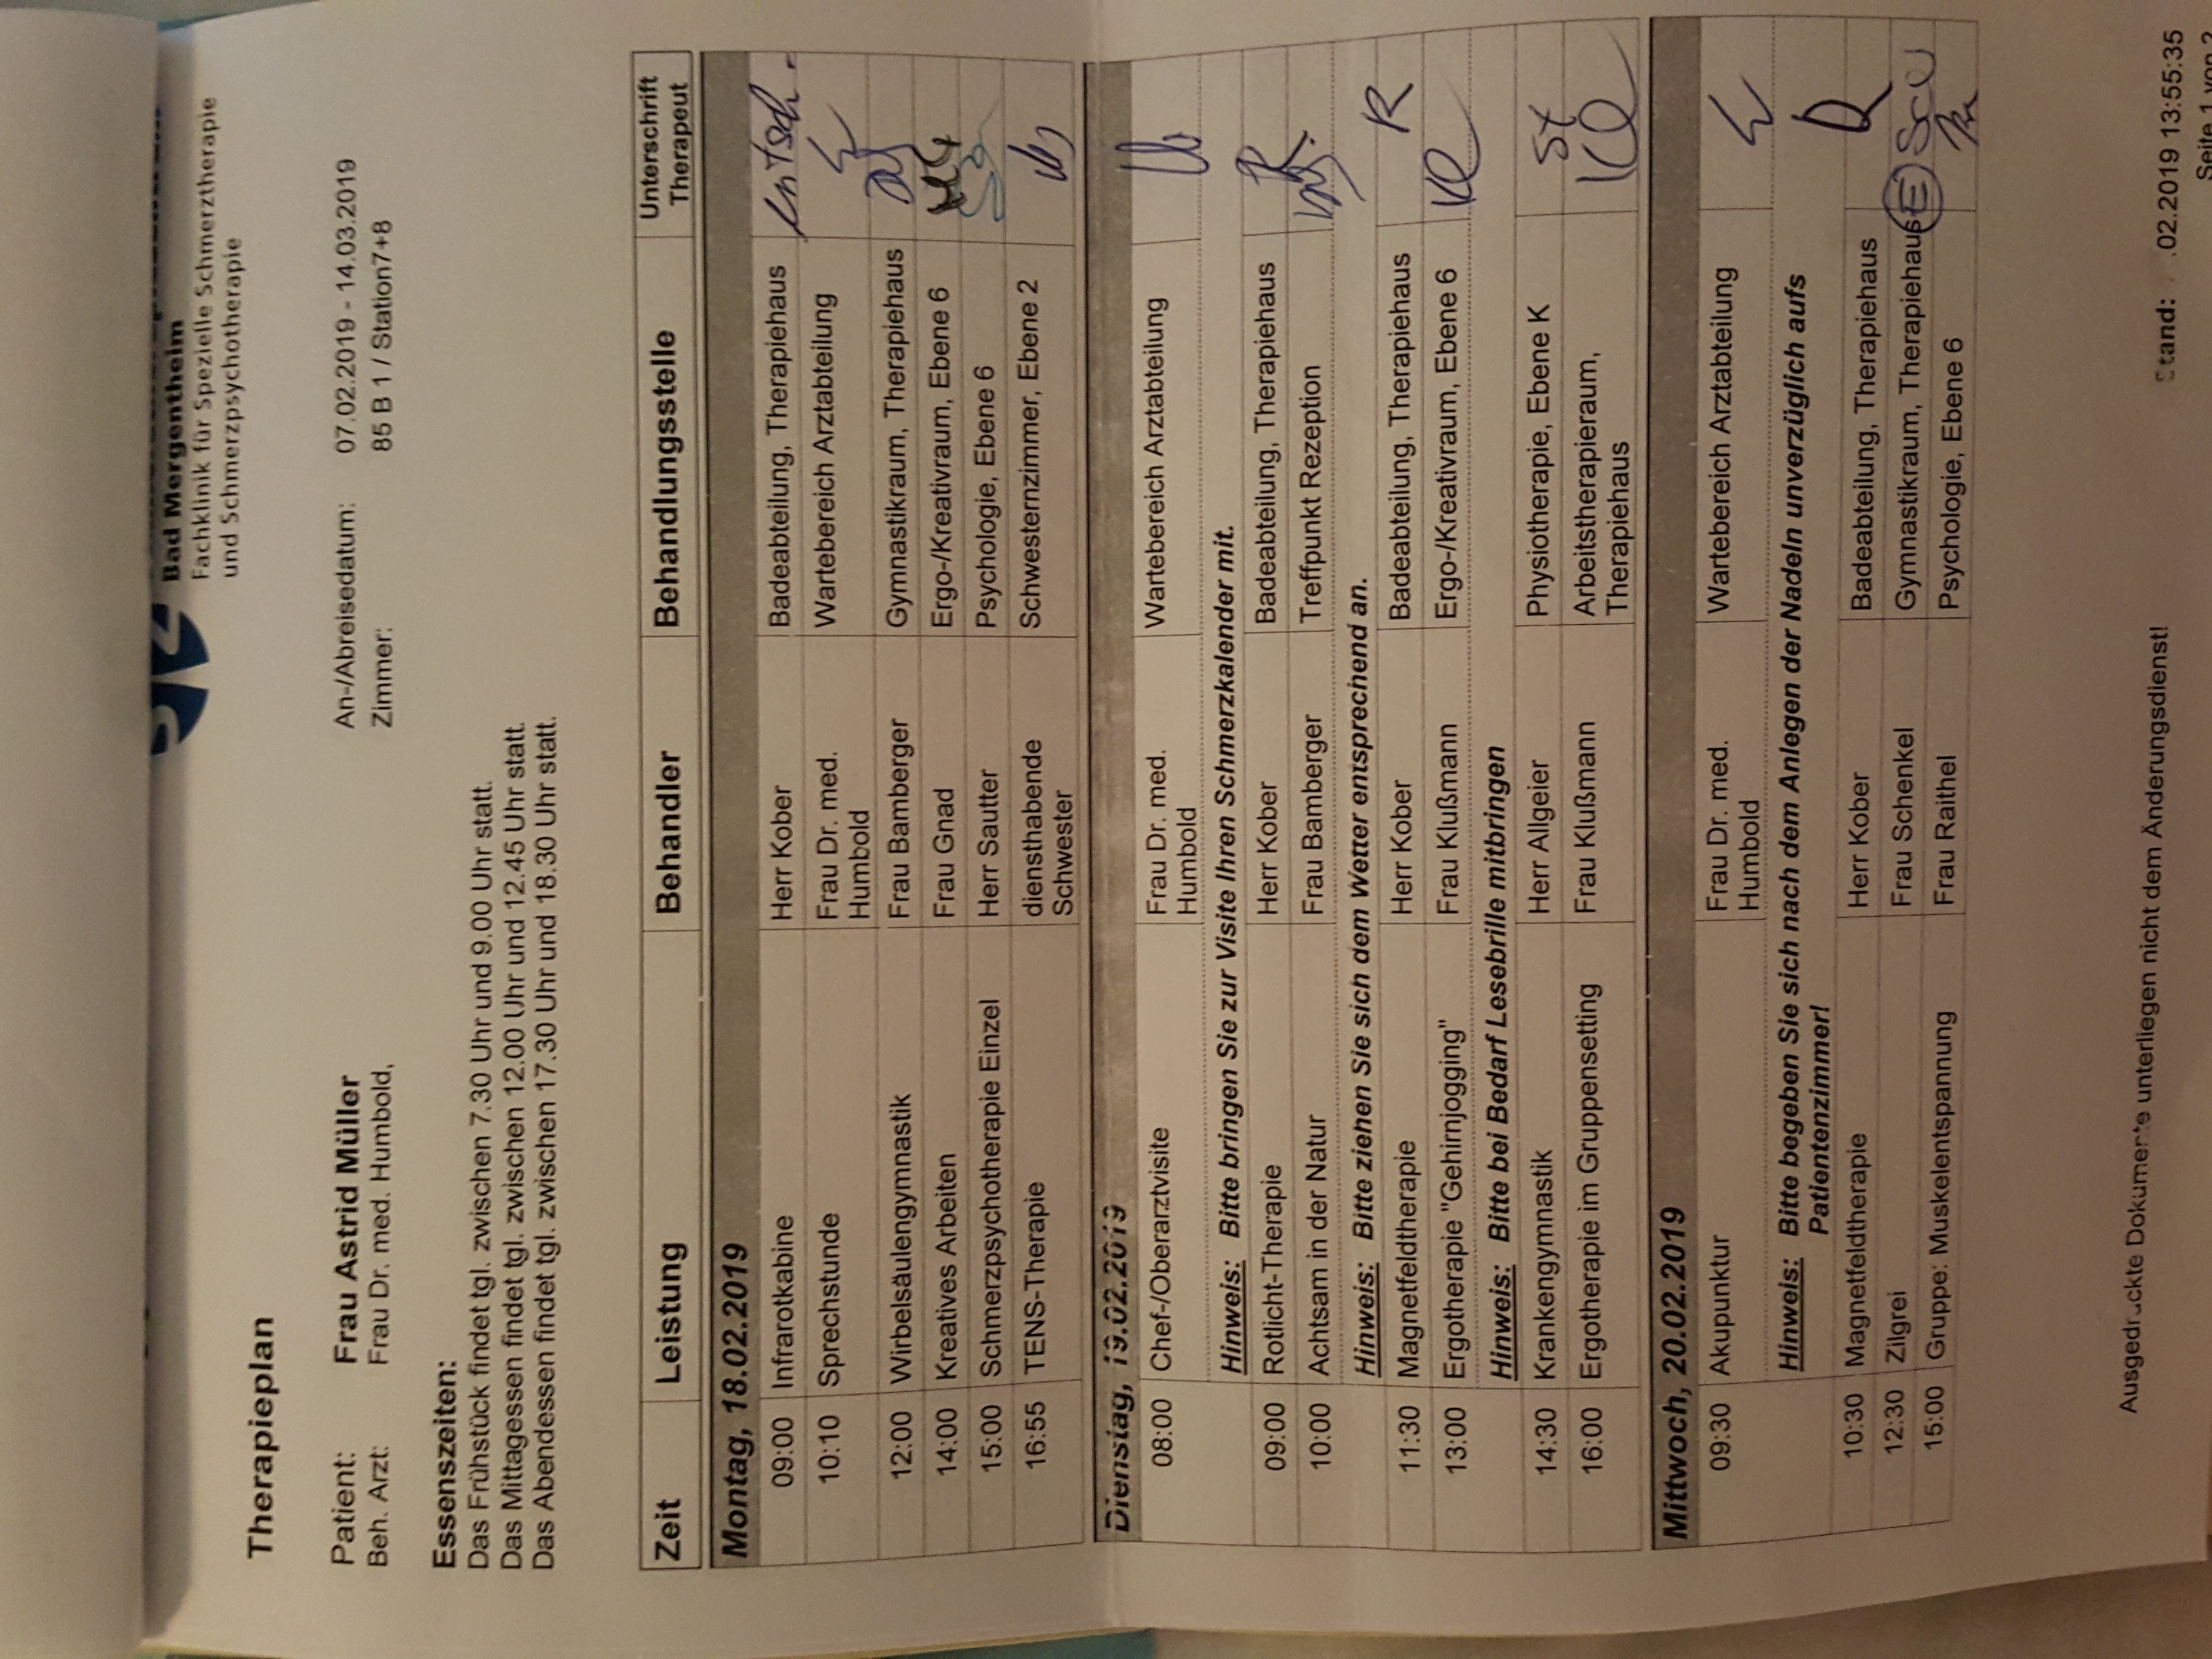 Bad Mergentheim
Fachklinik für Spezielle Schmerztherapie
und Schmerzpsychotherapie
Therapieplan
Patient: Frau Astrid Müller An-/Abreisedatum: 07.02.2019 - 14.03.2019
Beh. Arzt: Frau Dr. med. Humbold, Zimmer: 85 B 1 / Station7+8
Essenszeiten:
Das Frühstück findet tgl. zwischen 7.30 Uhr und 9.00 Uhr statt.
Das Mittagessen findet tgl. zwischen 12.00 Uhr und 12.45 Uhr statt.
Das Abendessen findet tgl. zwischen 17.30 Uhr und 18.30 Uhr statt.
Zeit Leistung Behandler Behandlungsstelle Unterschrift
Therapeut
Montag, 18.02.2019
09:00 Infrarotkabine Herr Kober Badeabteilung, Therapiehaus
10:10 Sprechstunde Frau Dr. med. Wartebereich Arztabteilung
Humbold
12:00 Wirbelsäulengymnastik Frau Bamberger Gymnastikraum, Therapiehaus
14:00 Kreatives Arbeiten Frau Gnad Ergo-/Kreativraum, Ebene 6
15:00 Schmerzpsychotherapie Einzel Herr Sautter Psychologie, Ebene 6
16:55 TENS-Therapie diensthabende Schwesternzimmer, Ebene 2
Schwester
Dienstag, 19.02.2019
08:00 Chef-/Oberarztvisite Frau Dr. med. Wartebereich Arztabteilung
Humbold
Hinweis: Bitte bringen Sie zur Visite Ihren Schmerzkalender mit.
09:00 Rotlicht-Therapie Herr Kober Badeabteilung, Therapiehaus
10:00 Achtsam in der Natur Frau Bamberger Treffpunkt Rezeption
Hinweis: Bitte ziehen Sie sich dem Wetter entsprechend an.
11:30 Magnetfeldtherapie Herr Kober Badeabteilung, Therapiehaus R
13:00 Ergotherapie "Gehirnjogging" Frau Klußmann Ergo-/Kreativraum, Ebene 6 Kl
Hinweis: Bitte bei Bedarf Lesebrille mitbringen
14:30 Krankengymnastik Herr Allgeier Physiotherapie, Ebene K St
16:00 Ergotherapie im Gruppensetting Frau Klußmann Arbeitstherapieraum, Kl
Therapiehaus
Mittwoch, 20.02.2019
09:30 Akupunktur Frau Dr. med. Wartebereich Arztabteilung
Humbold
Hinweis: Bitte begeben Sie sich nach dem Anlegen der Nadeln unverzüglich aufs
Patientenzimmer!
10:30 Magnetfeldtherapie Herr Kober Badeabteilung, Therapiehaus
12:30 Zilgrei Frau Schenkel Gymnastikraum, Therapiehaus E
15:00 Gruppe: Muskelentspannung Frau Raithel Psychologie, Ebene 6
Ausgedruckte Dokumente unterliegen nicht dem Änderungsdienst! Stand: .02.2019 13:55:35
Seite 1 von 2